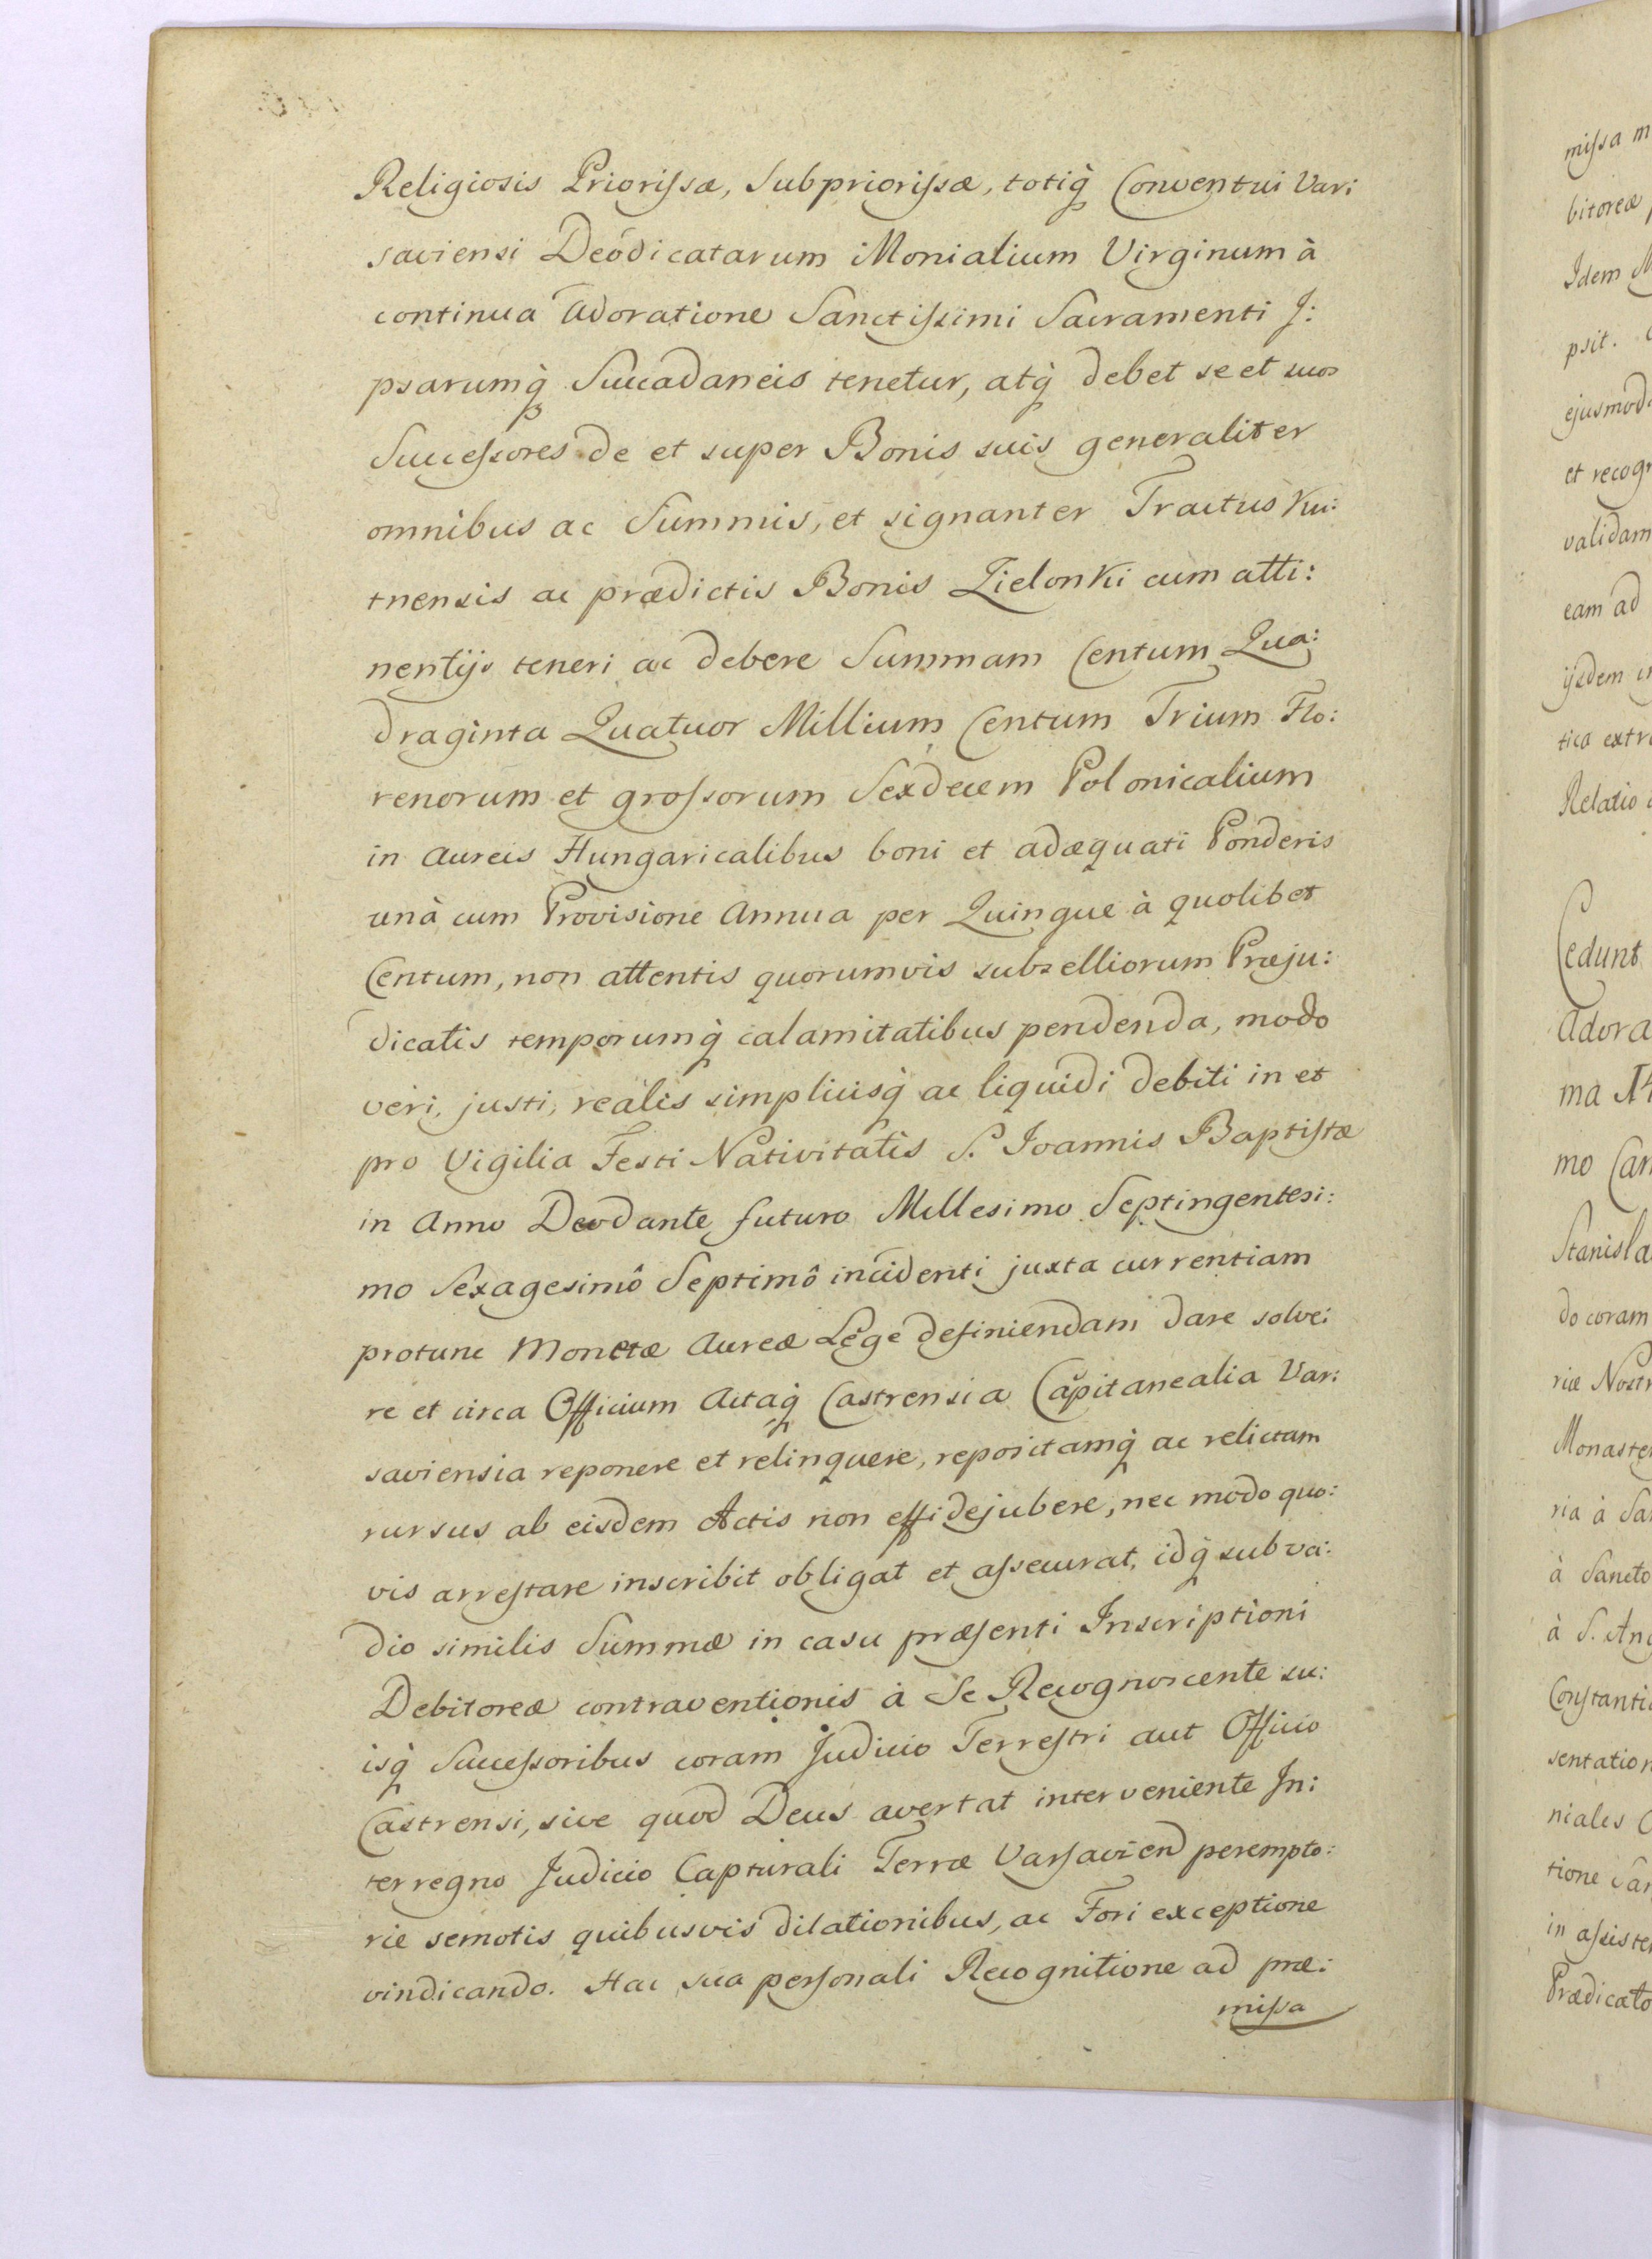 Religiosis Priorissæ, Subpriorissæ, totiq̀ Conventui Var:
saviensi Deodicatarum Monialium Virginum à
continua Adoratione Sanctissimi Sacramenti I:
psarumq̀ Succadaneis tenetur, atq̀ debet se et suos
Successores de et super Bonis suis generaliter
omnibus ac Summis, et signanter Tractus Ku:
tnensis ac prædictis Bonis Zielonki cum atti:
nentijs teneri ac debere Summam Centum Qua:
draginta Quatuor Millium Centum Trium Flo:
renorum et grossorum Sexdecem Polonicalium
in Aureis Hungaricalibus boni et adæquati Ponderis
unà cum Provisione Annua per Quinque à quolibet
Centum, non attentis quorumvis subselliorum Præju:
dicatis temporumq̀ calamitatibus pendenda, modo
veri, justi, realis simplicisq̀ ac liquidi debiti in et
pro Vigilia Festi Nativitatis S. Ioannis Baptistæ
in Anno Deodante futuro Millesimo Septingentesi:
mo Sexagesimô Septimô incidenti juxta currentiam
protunc Monetæ Aureæ Lege definiendam dare solve:
re et circa Officium Actaq̀ Castrensia Capitanealia Var:
saviensia reponere et relinquere, repositamq̀ ac relictam
rursus ab eisdem Actis non effidejubere, nec modo quo:
vis arrestare inscribit obligat et assecurat, idq̀ sub va:
dio similis Summæ in casu præsenti Inscriptioni
Debitoreæ contraventionis à Se Recognoscente su:
isq̀ Successoribus coram Judicio Terrestri aut Officio
Castrensi, sive quod Deus avertat interveniente In:
terregno Judicio Capturali Terræ Varsavien̄ perempto:
rie semotis quibusvis dilationibus, ac Fori exceptione
vindicando. Hac sua personali Recognitione ad præ:
missa
missa m
bitoreæ
Idem
psit.
ejusmodi
et recogn
validam
eam ad
ijsdem in
tica extra
Relatio
Cedunt
Adora
ma
mo Can
Stanisla
do coram
riæ Nostr
Monaster
ria à Sa
à Sancto
à S. Ang
Constantia
sentation
niales
tione
in assisten
Prædicato